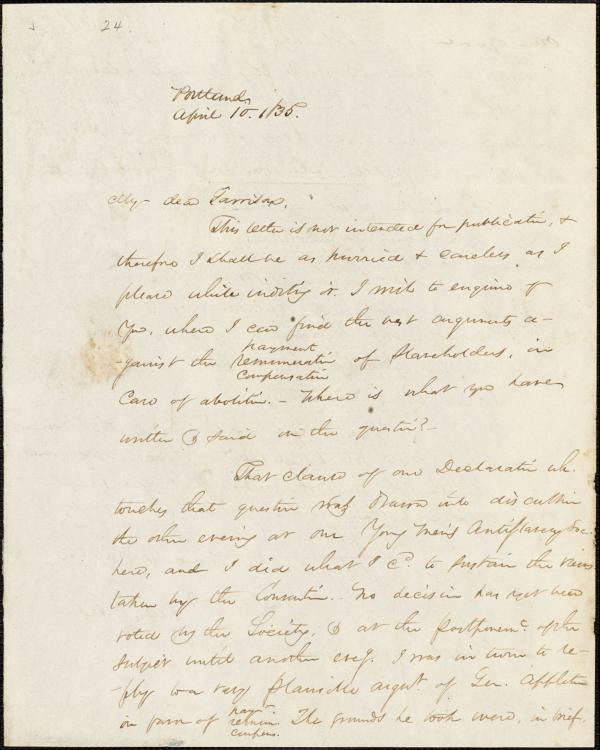 24
Portland,
April 10. 1835.
My dear Garrison,
This letter is not intended for publicatn, &
therefore I shall be as hurried & careless as I
please while inditing it. I wish to enquire of
you, where I can find the best arguments a-
payment
-gainst the remuneratn of slaveholders, in
compensatn
case of abolitn. - Where is what you have
written & said on the questn? -
That clause of our Declaratn wh.
touches that question was drawn into discussion
the other evening at our Young Men's Antislavery Soc.
here, and I did what I cd. to sustain the views
taken by the Conventn. - No decision has yet been
voted by the Society, & at the postponemt. of the
subject until another eveg. I was in turn to re-
-ply to a very plausible argut. of Gen. Appleton
payt.
in favor of remun. The grounds he took were, in brief,
compens.